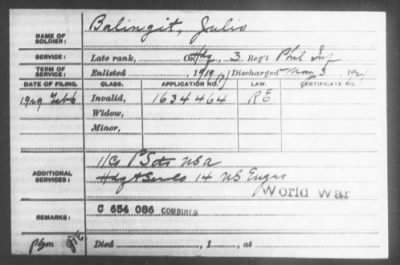 Balingit, Julio
NAME OF SOLDIER:
SERVICE: Late rank, Co. Hdq, 3 Reg't Phil Inf
TERM OF SERVICE: Enlisted 1919, Discharged Mar 3, 192
DATE OF FILING. CLASS. APPLICATION NO. LAW. CERTIFICATE NO.
1929 Feb 6 Invalid, 1634464 RE
Widow,
Minor,
ADDITIONAL SERVICES: 1/Co P Scts USA
Hdq & Ser Co 14 US Engrs
World War
REMARKS: C 654 086 COMBINED
Died , 1 , at